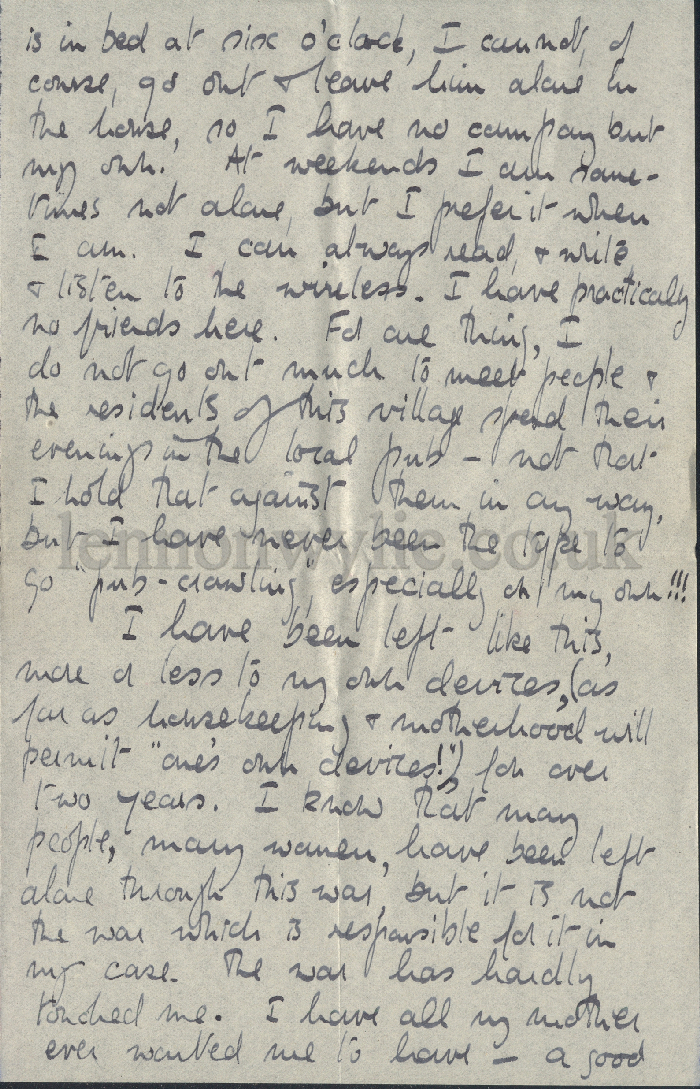 is in bed at six o'clock, I cannot, of
course, go out & leave him alone in
the house, so I have no company but
my own. At weekends I am some-
times not alone, but I prefer it when
I am. I can always read, & write,
& listen to the wireless. I have practically
no friends here. For one thing, I
do not go out much to meet people &
the residents of this village spend their
evenings in the local pub – not that
I hold that against them in any way,
but I have never been the type to
go "pub-crawling", especially on my own!!!
I have been left like this,
more or less to my own devices, (as
far as housekeeping & motherhood will
permit "one's own devices!") for over
two years. I know that many
people, many women, have been left
alone through this war, but it is not
the war which is responsible for it in
my case. The war has hardly
touched me. I have all my mother
ever wanted me to have – a good
lennonwylie.co.uk